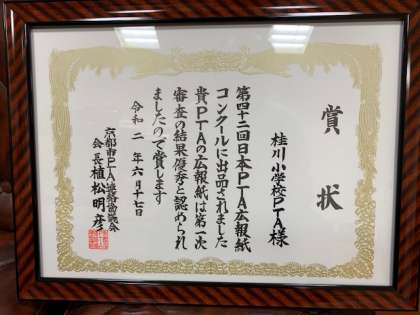 賞状
桂川小学校PTA様
第四十二回日本PTA広報紙
コンクールに出品されました
貴PTAの広報紙は第一次
審査の結果優秀と認められ
ましたので賞します
令和二年六月十七日
京都市PTA連絡協議会
会長植松明彦